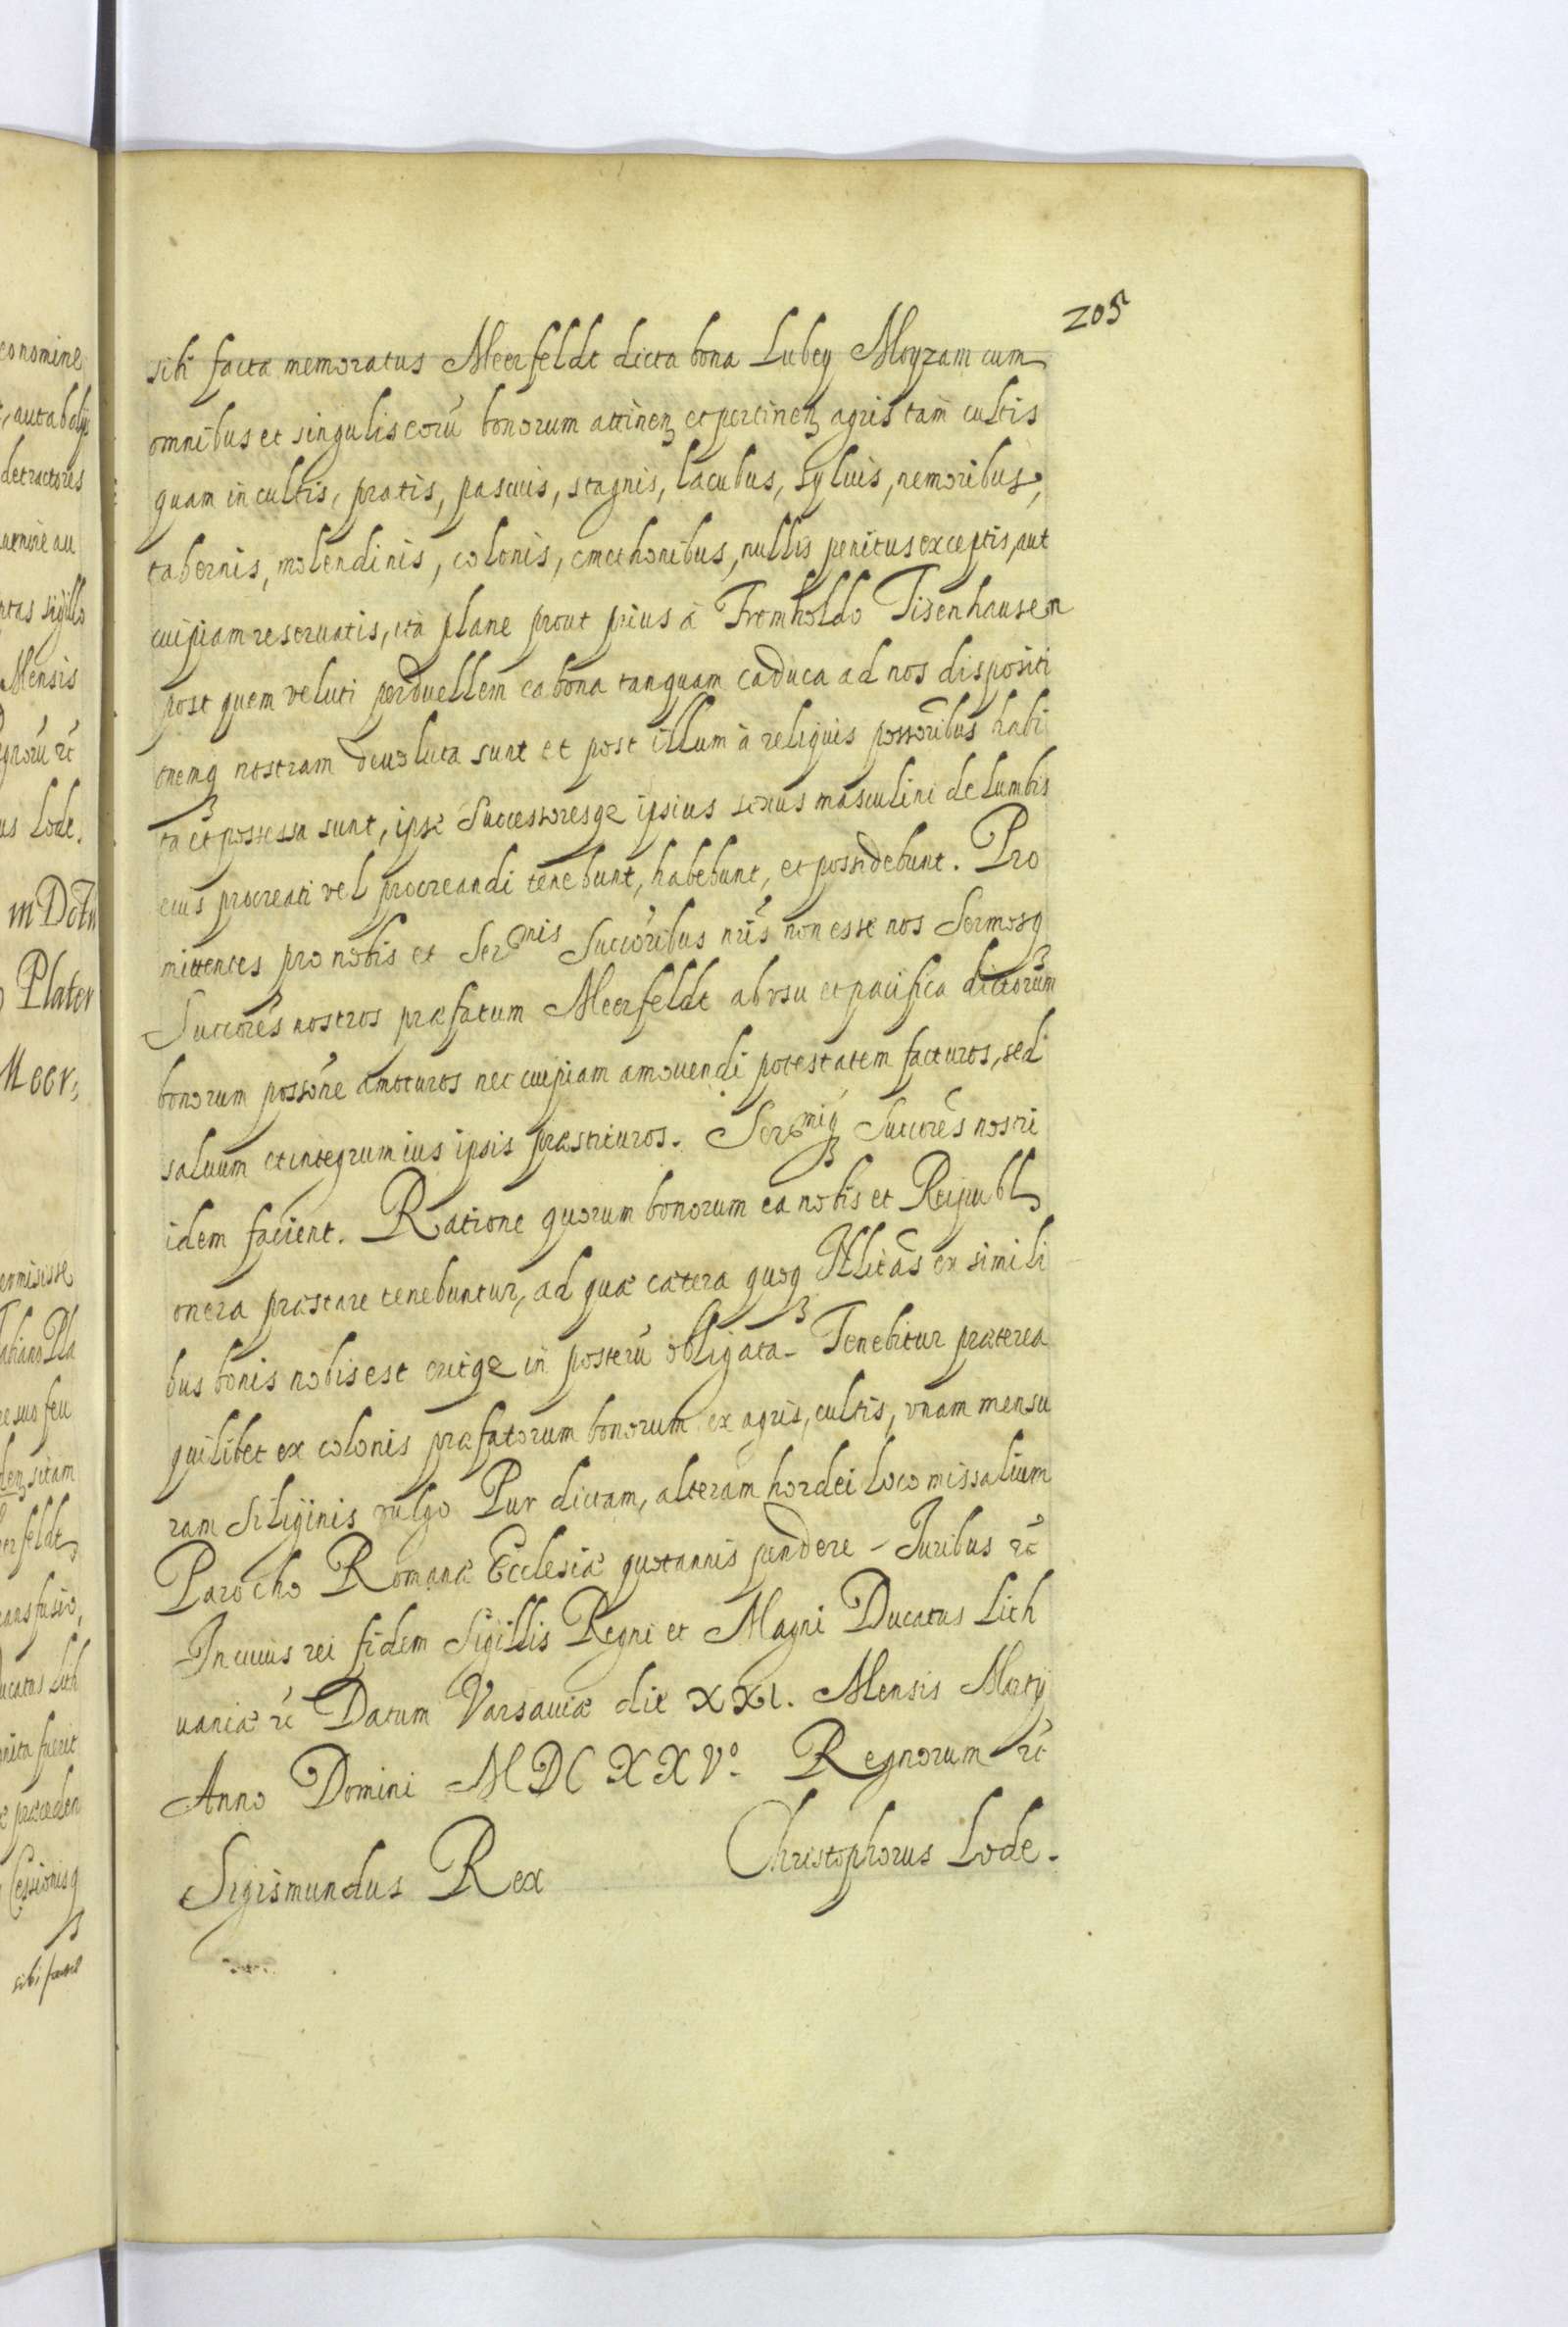 205
sibi facta memoratus Meerfeldt dicta bona Lubey Moyzam cum
omnibus et singulis eorũ bonorum attinen et pertinen agris tam cultis
quam incultis, pratis, pascuis, stagnis, lacubus, sylvis, nemoribus,
tabernis, molendinis, colonis, cmethonibus, nullis penitus exceptis, aut
cuipiam reseruatis, ità plane prout prius à Fromholdo Tisenhausen
post quem veluti perduellem ea bona tanquam caduca ad nos dispositi
onemq nostram deuoluta sunt et post illum à reliquis possoribus habi
ta et possessa sunt, ipse Successoresqe ipsius sexus masculini de lumbis
eius procreati vel procreandi tenebunt, habebunt, et possidebunt. Pro
mittentes pro nobis et Sermis Succoribus nris non esse nos Sermosq
Succores nostros præfatum Meerfeldt ab vsu et pacifica dictorum
bonorum possone amoturos nec cuipiam amouendi potestatem facturos, sed
saluum et integrum ius ipsis præstituros. Sermiq Succores nostri
idem facient. Ratione quorum bonorum ea nobis et Reipubl
onera præstare tenebuntur, ad quæ cætera quoq Nlitas ex simili
bus bonis nobis est eritqe in posterũ obligata. Tenebitur præterea
quilibet ex colonis præfatorum bonorum ex agris, cultis, vnam mensu
ram siliginis vulgo Pur dictam, alteram hordei loco missalium
Parocho Romanæ Ecclesiæ quotannis pendere - Iuribus etc
In cuius rei fidem Sigillis Regni et Magni Ducatus Lith
uaniæ etc Datum Varsauiæ die XXI. Mensis Martij
Anno Domini MDCXXVº. Regnorum etc
Sigismundus Rex Christophorus Lode.